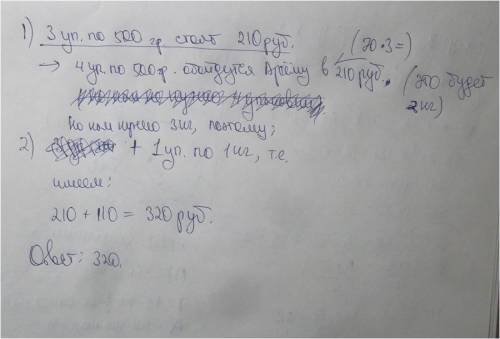 1) 3 уп. по 500 гр стоят 210 руб. (70·3=)
→ 4 уп. по 500 гр. обойдутся Артёму в 210 руб. (это будет 2 кг)
Но нам нужно 3 кг, поэтому;
2) + 1 уп. по 1 кг, т.е.
имеем:
210 + 110 = 320 руб.
Ответ: 320.